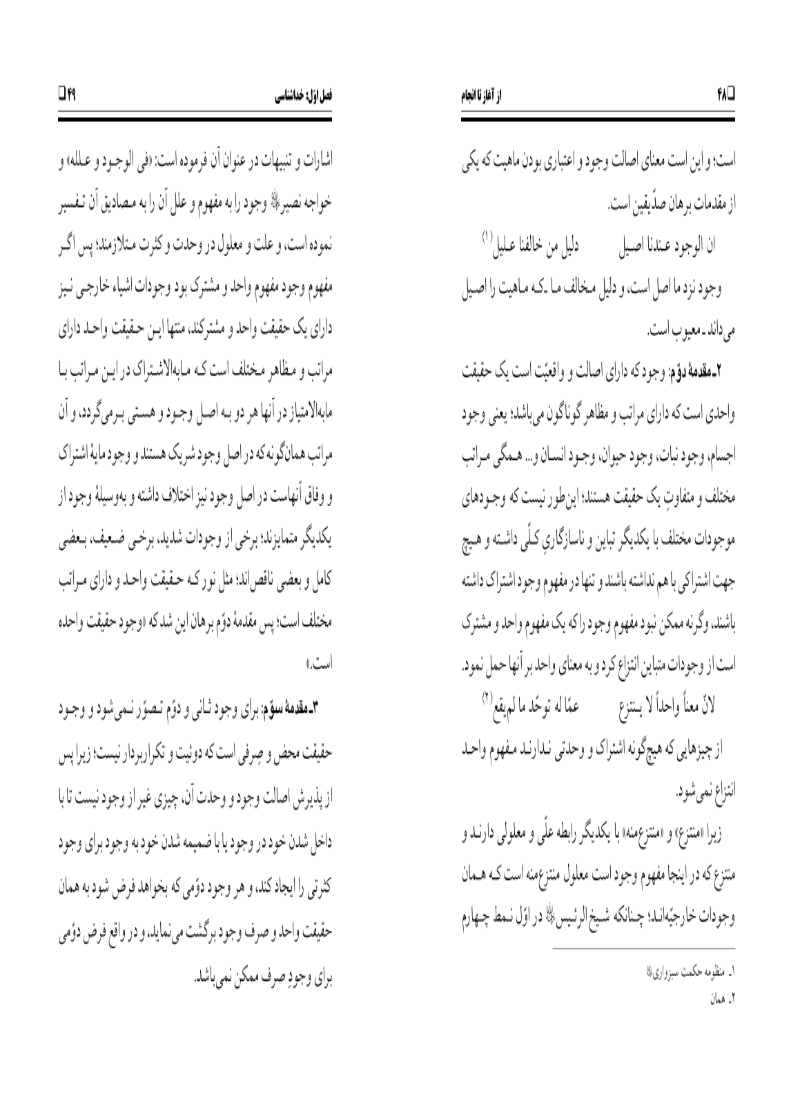 ❑۴۸ از آغاز تا انجام
است؛ و این است معنای اصالت وجود و اعتباری بودن ماهیت که یکی
از مقدمات برهان صدّیقین است.
ان الوجود عـندنا اصـیل دلیل من خالفنا عـلیل(۱)
وجود نزد ما اصل است، و دلیل مـخالف مـا ـ کـه مـاهیت را اصـیل
می‌داند ـ معیوب است.
۲ـ مقدمهٔ دوّم: وجود که دارای اصالت و واقعیّت است یک حقیقت
واحدی است که دارای مراتب و مظاهر گوناگون می‌باشد؛ یعنی وجود
اجسام، وجود نبات، وجود حیوان، وجـود انسـان و... هـمگی مـراتب
مختلف و متفاوتِ یک حقیقت هستند؛ این‌طور نیست که وجـودهای
موجودات مختلف با یکدیگر تباین و ناسازگاریِ کـلّی داشـته و هـیچ
جهت اشتراکی با هم نداشته باشند و تنها در مفهوم وجود اشتراک داشته
باشند، وگرنه ممکن نبود مفهوم وجود را که یک مفهوم واحد و مشترک
است از وجودات متباین انتزاع کرد و به معنای واحد بر آنها حمل نمود.
لانّ معناً واحداً لا یـنتزع عمّا له توحّد ما لم‌یقع(۲)
از چیزهایی که هیچ‌گونه اشتراک و وحدتی نـدارنـد مـفهوم واحـد
انتزاع نمی‌شود.
زیرا «منتزع» و «منتزع‌منه» با یکدیگر رابطه علّی و معلولی دارنـد و
منتزع که در اینجا مفهوم وجود است معلول منتزع‌منه است کـه هـمان
وجودات خارجیّه‌انـد؛ چـنانکه شـیخ الرئـیس در اوّل نـمط چـهارم
۱ـ منظومه حکمت سبزواری
۲ـ همان
فصل اوّل: خداشناسی ۴۹❑
اشارات و تنبیهات در عنوان آن فرموده است: «فی الوجـود و عـلله» و
خواجه نصیر وجود را به مفهوم و علل آن را به مـصادیق آن تـفسیر
نموده است، و علت و معلول در وحدت و کثرت مـتلازمند؛ پس اگـر
مفهوم وجود مفهوم واحد و مشترک بود وجودات اشیاء خارجـی نـیز
دارای یک حقیقت واحد و مشترکند، منتها ایـن حـقیقت واحـد دارای
مراتب و مـظاهر مـختلف است کـه مـابه‌الاشـتراک در ایـن مـراتب بـا
مابه‌الامتیاز در آنها هر دو بـه اصـل وجـود و هسـتی بـرمی‌گردد، و آن
مراتب همان‌گونه که در اصل وجود شریک هستند و وجود مایهٔ اشتراک
و وفاق آنهاست در اصل وجود نیز اختلاف داشته و به‌وسیلهٔ وجود از
یکدیگر متمایزند؛ برخی از وجودات شدید، برخـی ضـعیف، بـعضی
کامل و بعضی ناقص‌اند؛ مثل نور کـه حـقیقت واحـد و دارای مـراتب
مختلف است؛ پس مقدمهٔ دوّم برهان این شد که «وجود حقیقت واحده
است.»
۳ـ مقدمهٔ سوّم: برای وجود ثـانی و دوّم تـصوّر نـمی‌شود و وجـود
حقیقت محض و صِرفی است که دوئیت و تکراربردار نیست؛ زیرا پس
از پذیرش اصالت وجود و وحدت آن، چیزی غیر از وجود نیست تا با
داخل شدن خود در وجود یا با ضمیمه شدن خود به وجود برای وجود
کثرتی را ایجاد کند، و هر وجود دوّمی که بخواهد فرض شود به همان
حقیقت واحد و صرف وجود برگشت می‌نماید، و در واقع فرض دوّمی
برای وجودِ صرف ممکن نمی‌باشد.